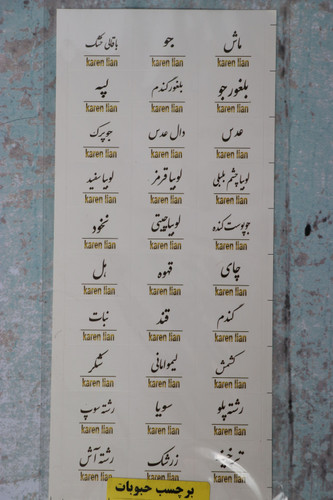 ماش جو باقالی خشک
karen lian karen lian karen lian
بلغور جو بلغور گندم لپه
karen lian karen lian karen lian
عدس دال عدس جو پرک
karen lian karen lian karen lian
لوبیا چشم بلبلی لوبیا قرمز لوبیا سفید
karen lian karen lian karen lian
جو پوست کنده لوبیا چیتی نخود
karen lian karen lian karen lian
چای قهوه هل
karen lian karen lian karen lian
گندم قند نبات
karen lian karen lian karen lian
کشمش لیمو امانی شکر
karen lian karen lian karen lian
رشته پلو سویا رشته سوپ
karen lian karen lian karen lian
زرشک رشته آش
karen lian karen lian
برچسب حبوبات